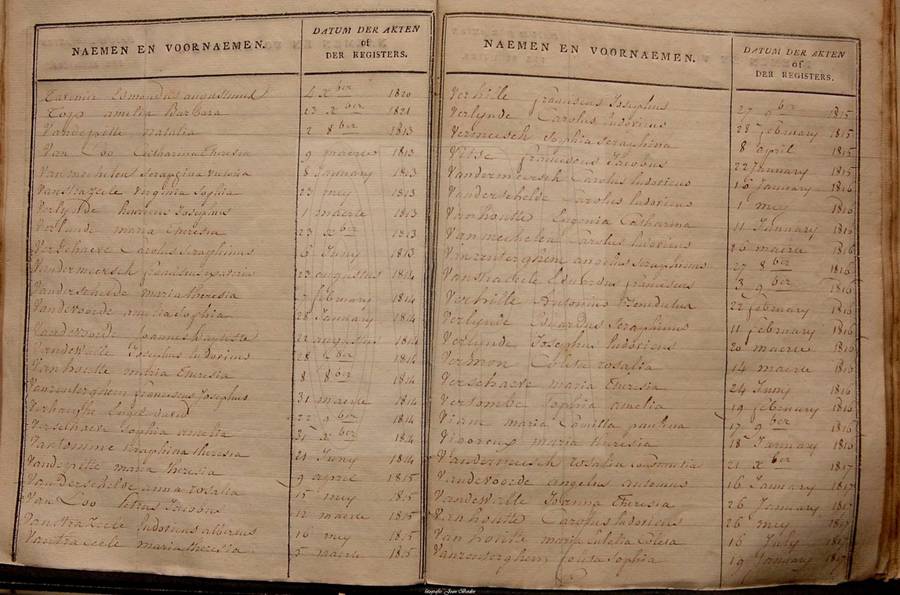 NAEMEN EN VOORNAEMEN. DATUM DER AKTEN
of
DER REGISTERS.
Esmondus augustinus 2 xber 1820
Tops amelia Barbara 23 xber 1821
Vandepitte natalia 2 8ber 1813
Van Loo Catharina Theresia 9 maerte 1813
Vanmechelen Serafina 8 January 1813
Vanstrazeele Virginia Sophia 23 mey 1813
Verlynde henricus Josephus 1 maerte 1813
Verlinde maria theresia 23 xber 1813
Verschaeve Carolus Seraphinus 6 Juny 1813
Vandermeersch franciscus 23 augustus 1814
Vanderschelde maria theresia february 1814
Vandevoorde maria sophia 28 January 1814
Vandevoorde Joannes baptiste 22 augustus 1814
Vandewalle Josephus ludovicus 28 8ber 1814
Vanhoutte maria Theresia 8 8ber 1814
Vanzenterghem franciscus Josephus 31 maerte 1814
Verhaeghe david 22 9ber 1814
Verschaeve Sophia amelia 31 xber 1814
Seraphina theresia 21 Juny 1814
Vandepitte maria theresia 9 april 1815
Vanderschelde anna rosalia 15 mey 1815
Van Loo Petrus 12 maerte 1815
Vanstrazeele ludovicus albertus 16 mey 1815
maria theresia 5 maerte 1815
NAEMEN EN VOORNAEMEN. DATUM DER AKTEN
of
DER REGISTERS.
Verhille franciscus Josephus 27 9ber 1815
Verlynde Carolus ludovicus 28 february 1815
Vermeesch Sophia Seraphina 8 april 1815
Vitse franciscus Jacobus 22 January 1815
Vandermeersch Carolus ludovicus 16 January 1816
Vanderschelde Carolus ludovicus 1 mey 1816
Vanhoutte Eugenia Catharina 11 January 1816
Vanmechelen Carolus ludovicus 26 maerte 1816
Vanzenterghem angelus seraphinus 27 8ber 1816
Vanstrazeele Eduardus franciscus 13 9ber 1816
Verhille Antonius Benedictus 22 february 1816
Verlynde Eduardus Seraphinus 11 february 1816
Verlinde Josephus ludovicus 20 maerte 1816
Vermon Coleta rosalia 14 maerte 1816
Verschaeve maria Theresia 24 Juny 1816
Vertombe Sophia amelia 19 february 1816
maria Camilla paulina 17 9ber 1816
maria theresia 18 January 1816
Vandermeesch rosalia Constantia 21 xber 1817
Vandevoorde angelus antonius 16 January 1817
Vandewalle Joanna Theresia 26 January 1817
Vanhoutte Carolus ludovicus 26 mey 1817
Van houtte maria Coleta 16 July 1817
Vanzenterghem Sophia 19 January 1817